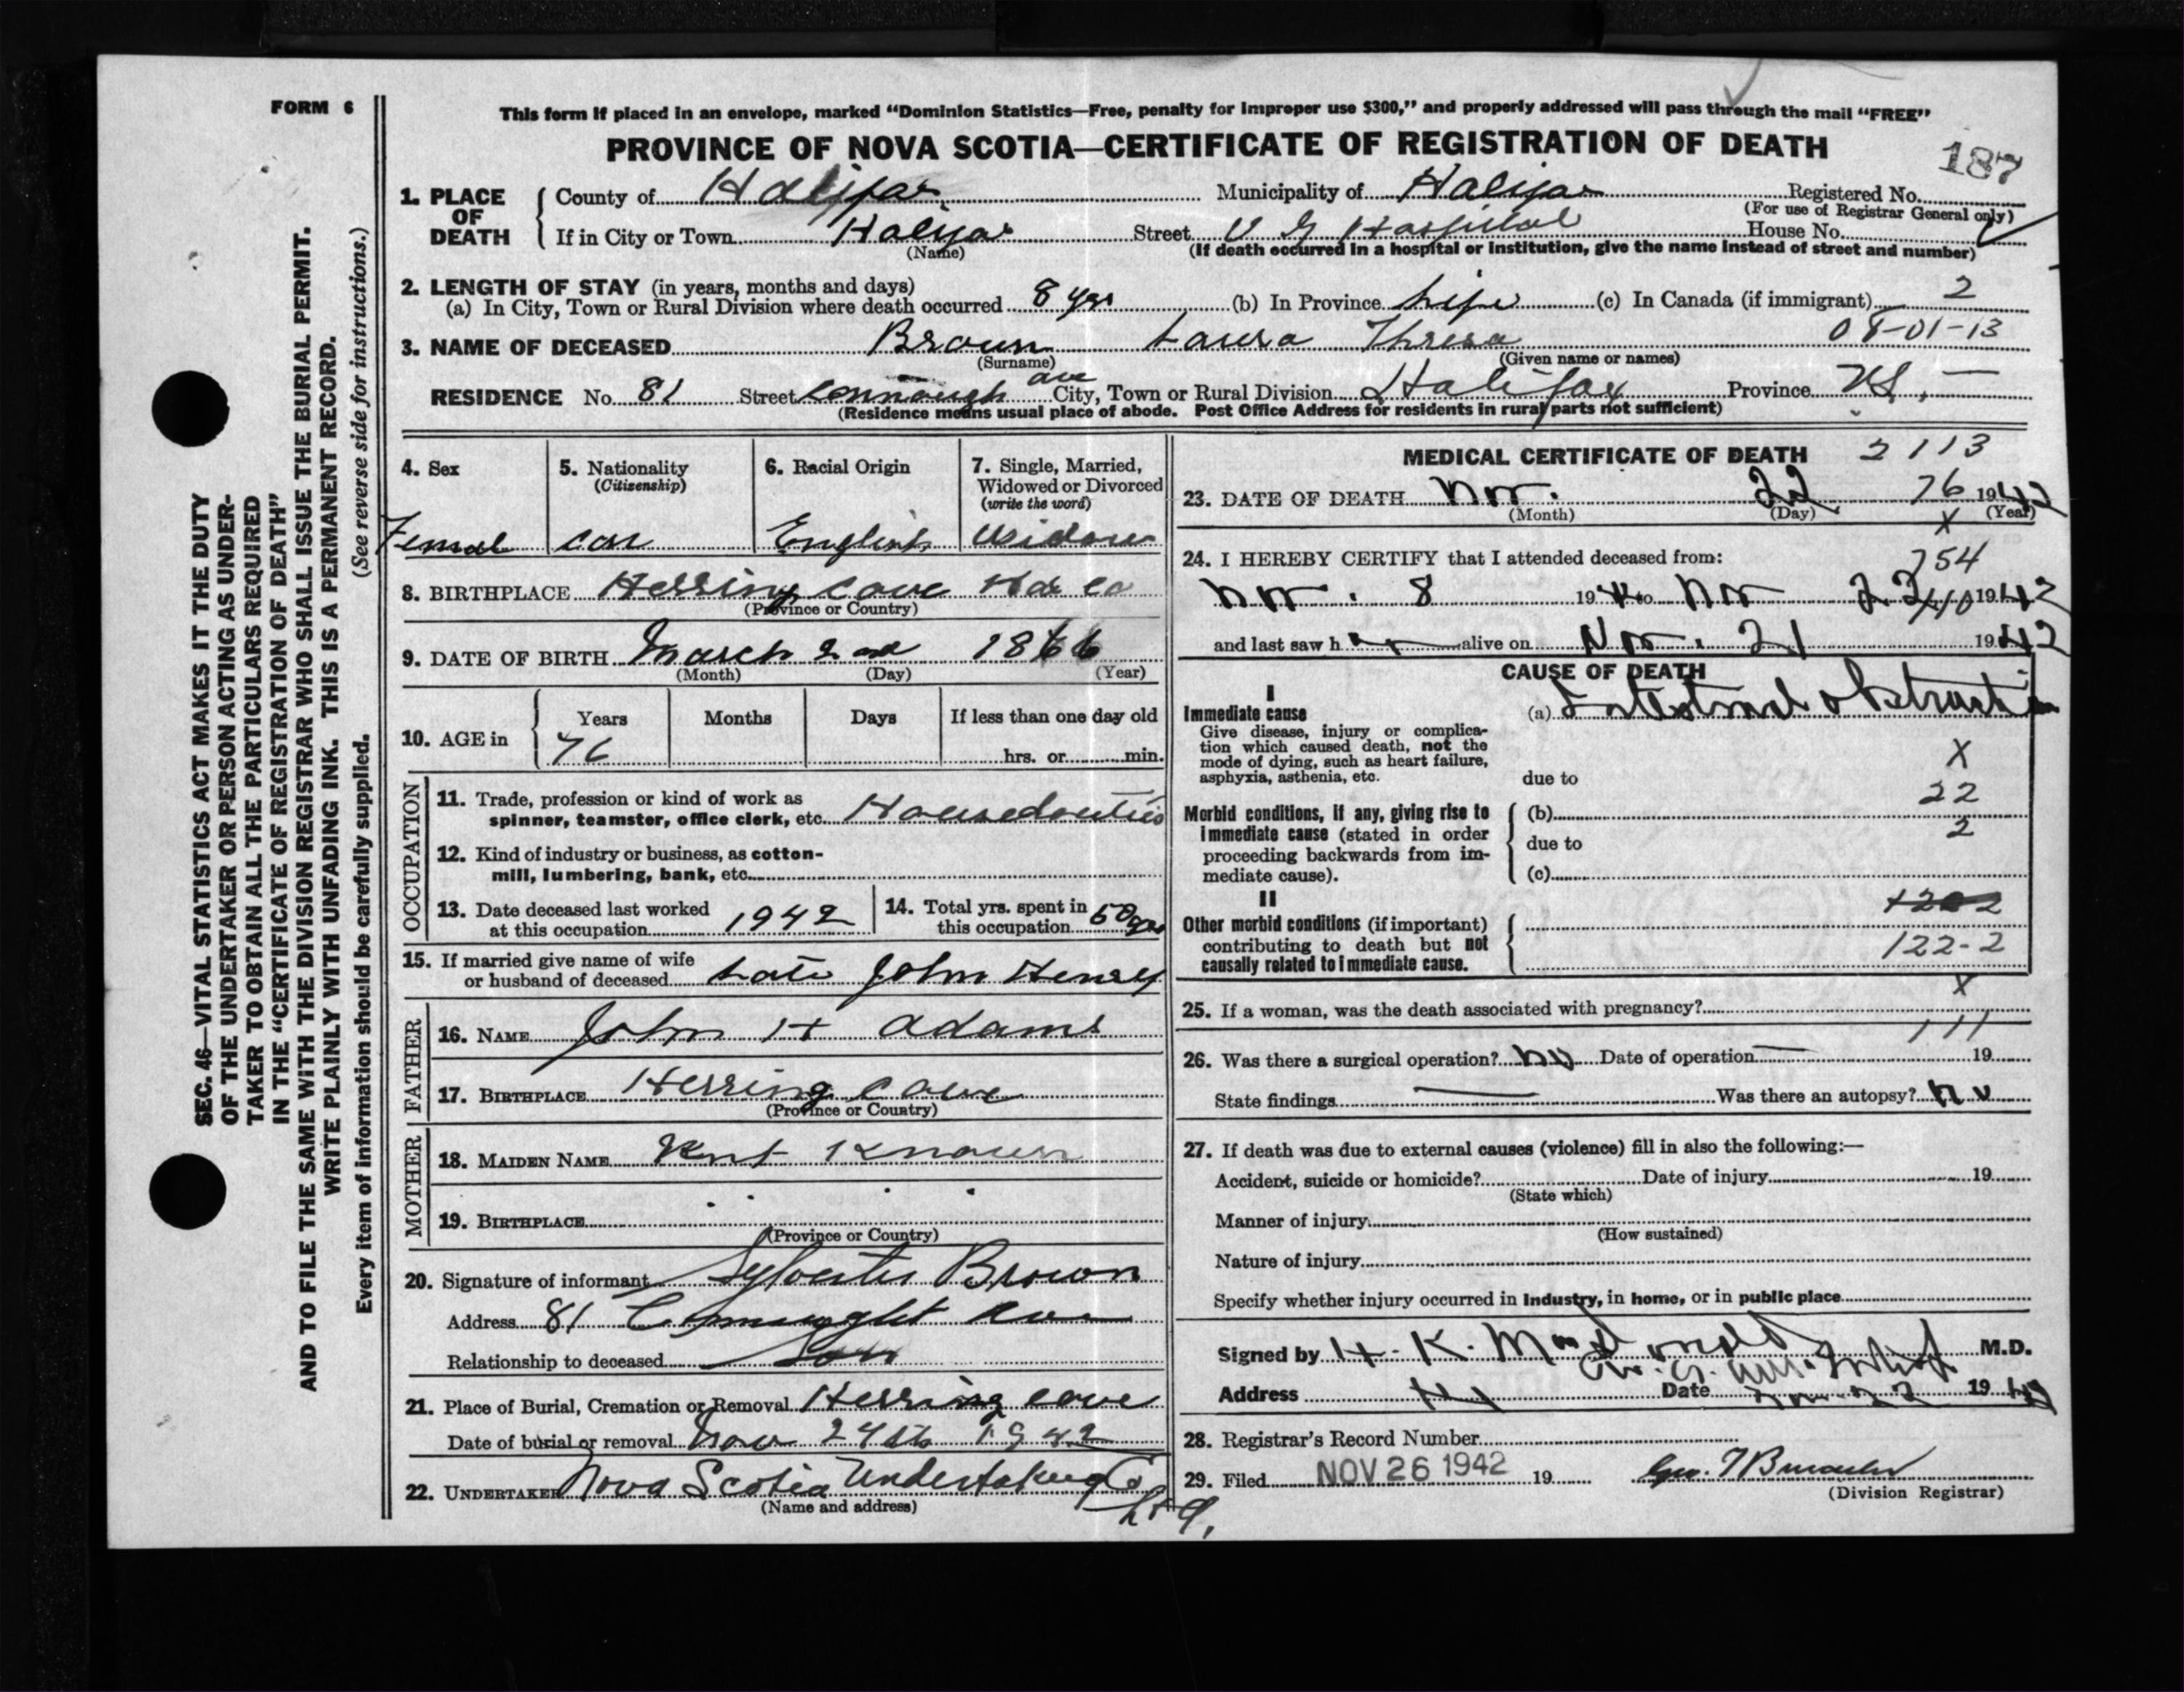 FORM 6
This form if placed in an envelope, marked "Dominion Statistics—Free, penalty for improper use $300," and properly addressed will pass through the mail "FREE"
PROVINCE OF NOVA SCOTIA—CERTIFICATE OF REGISTRATION OF DEATH
187
1. PLACE OF DEATH
County of Halifax Municipality of Halifax Registered No.
(For use of Registrar General only)
If in City or Town Halifax Street V G Hospital House No.
(Name) (If death occurred in a hospital or institution, give the name instead of street and number)
2. LENGTH OF STAY (in years, months and days)
(a) In City, Town or Rural Division where death occurred 8 yrs (b) In Province Life (c) In Canada (if immigrant) 2
08-01-13
3. NAME OF DECEASED Brown Laura Thresa
(Surname) (Given name or names)
RESIDENCE No. 81 Street Connaugh ave City, Town or Rural Division Halifax Province N.S.
(Residence means usual place of abode. Post Office Address for residents in rural parts not sufficient)
SEC. 46—VITAL STATISTICS ACT MAKES IT THE DUTY
OF THE UNDERTAKER OR PERSON ACTING AS UNDER-
TAKER TO OBTAIN ALL THE PARTICULARS REQUIRED
IN THE "CERTIFICATE OF REGISTRATION OF DEATH"
AND TO FILE THE SAME WITH THE DIVISION REGISTRAR WHO SHALL ISSUE THE BURIAL PERMIT.
WRITE PLAINLY WITH UNFADING INK. THIS IS A PERMANENT RECORD.
Every item of information should be carefully supplied. (See reverse side for instructions.)
4. Sex
Female
5. Nationality
(Citizenship)
can
6. Racial Origin
English
7. Single, Married,
Widowed or Divorced
(write the word)
Widow
8. BIRTHPLACE Herring Cove Hax Co
(Province or Country)
9. DATE OF BIRTH March 2nd 1866
(Month) (Day) (Year)
10. AGE in
Years Months Days If less than one day old
76 hrs. or min.
OCCUPATION
11. Trade, profession or kind of work as
spinner, teamster, office clerk, etc. Housedouties
12. Kind of industry or business, as cotton-
mill, lumbering, bank, etc.
13. Date deceased last worked
at this occupation 1942
14. Total yrs. spent in
this occupation 50 yrs
15. If married give name of wife
or husband of deceased Late John Henry
FATHER
16. NAME John H Adams
17. BIRTHPLACE Herring Cove
(Province or Country)
MOTHER
18. MAIDEN NAME Knot Known
19. BIRTHPLACE
(Province or Country)
20. Signature of informant Sylvester Brown
Address 81 Connaught Ave
Relationship to deceased Son
21. Place of Burial, Cremation or Removal Herring Cove
Date of burial or removal Nov 24th 1942
22. UNDERTAKER Nova Scotia Undertaking Co
Ltd.
(Name and address)
MEDICAL CERTIFICATE OF DEATH 2113
23. DATE OF DEATH Nov. 22 76 1942
(Month) (Day) (Year)
X
24. I HEREBY CERTIFY that I attended deceased from:
754
Nov. 8 1942 to Nov 22 1942
and last saw her alive on Nov. 21 1942
CAUSE OF DEATH
I
Immediate cause
Give disease, injury or complica-
tion which caused death, not the
mode of dying, such as heart failure,
asphyxia, asthenia, etc.
(a) Intestinal obstruction
X
due to
22
Morbid conditions, if any, giving rise to
immediate cause (stated in order
proceeding backwards from im-
mediate cause).
(b)
2
due to
(c)
II
Other morbid conditions (if important)
contributing to death but not
causally related to immediate cause.
122-2
X
25. If a woman, was the death associated with pregnancy?
111
26. Was there a surgical operation? No Date of operation 19
State findings Was there an autopsy? No
27. If death was due to external causes (violence) fill in also the following:—
Accident, suicide or homicide? Date of injury 19
(State which)
Manner of injury
(How sustained)
Nature of injury
Specify whether injury occurred in industry, in home, or in public place
Signed by H. K. MacDonald M.D.
Address Date Nov 22 1942
28. Registrar's Record Number
29. Filed NOV 26 1942 19
(Division Registrar)